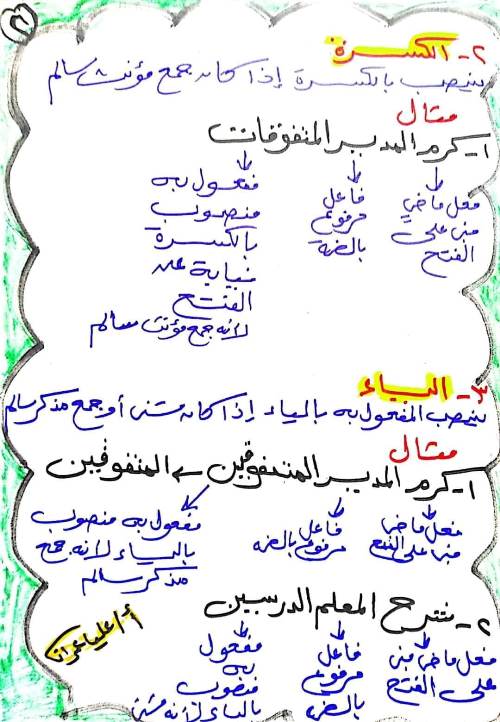 ٢
٢- الكسرة
ينصب بالكسرة إذا كان جمع مؤنث سالم
مثال
١- كرم المدير المتفوقات
فعل ماضي مبني على الفتح
فاعل مرفوع بالضمة
مفعول به منصوب بالكسرة نيابة عن الفتح لأنه جمع مؤنث سالم
٣- الياء
ينصب المفعول به بالياء إذا كان مثنى أو جمع مذكر سالم
مثال
١- كرم المدير المتفوقين → المتفوقين
فعل ماضي مبني على الفتح
فاعل مرفوع بالضمة
مفعول به منصوب بالياء لأنه جمع مذكر سالم
٢- شرح المعلم الدرسين
فعل ماضي مبني على الفتح
فاعل مرفوع بالضمة
مفعول به منصوب بالياء لأنه مثنى
أ/ علياء